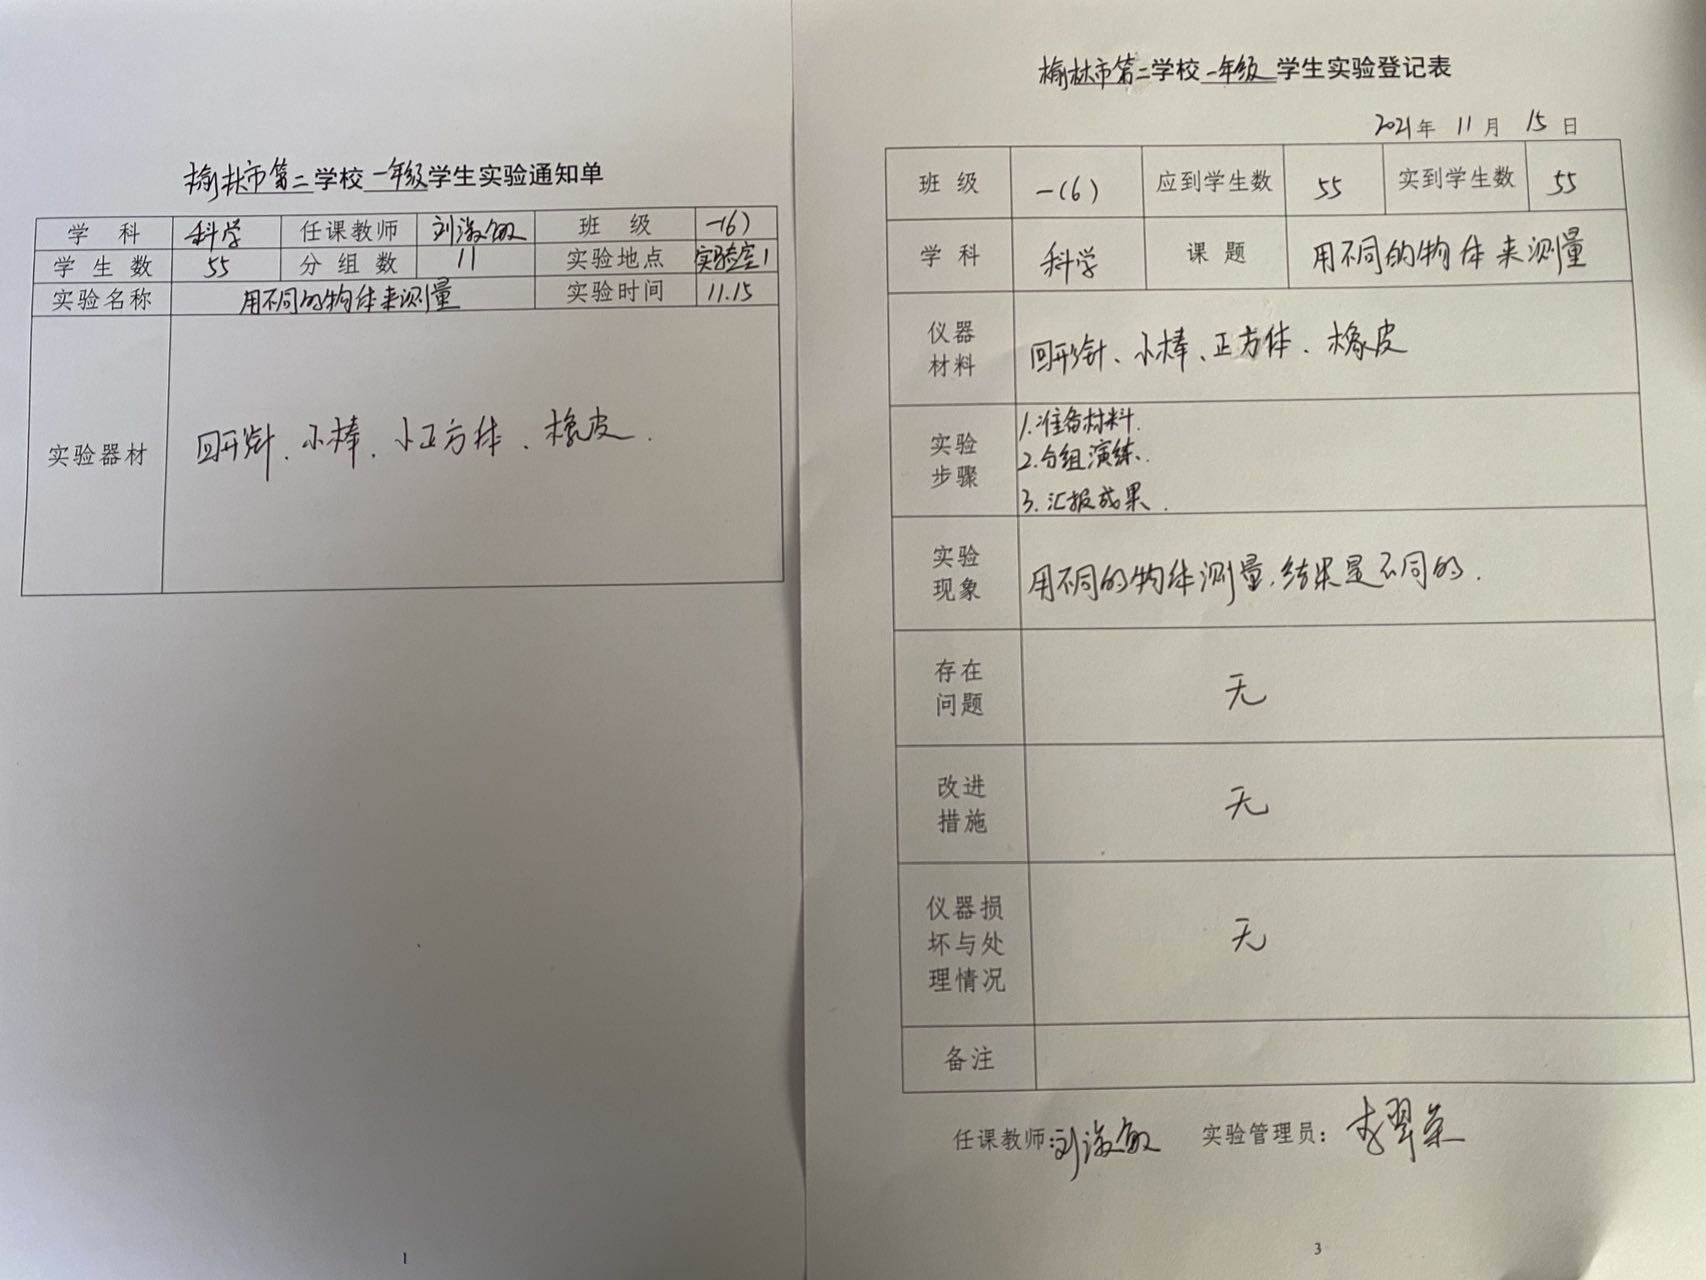 榆林市第二学校一年级学生实验通知单
学 科 科学 任课教师 刘 敏 班 级 一(6)
学 生 数 55 分 组 数 11 实验地点 实验室1
实验名称 用不同的物体来测量 实验时间 11.15
实验器材 回形针、小棒、小正方体、橡皮.
1
榆林市第二学校一年级学生实验登记表
2021年 11月 15日
班 级 一(6) 应到学生数 55 实到学生数 55
学 科 科学 课 题 用不同的物体来测量
仪器
材料
回形针、小棒、正方体、橡皮
实验
步骤
1.准备材料.
2.分组演练.
3.汇报成果.
实验
现象
用不同的物体测量,结果是不同的.
存在
问题
无
改进
措施
无
仪器损
坏与处
理情况
无
备注
任课教师:刘 敏 实验管理员: 李翠荣
3